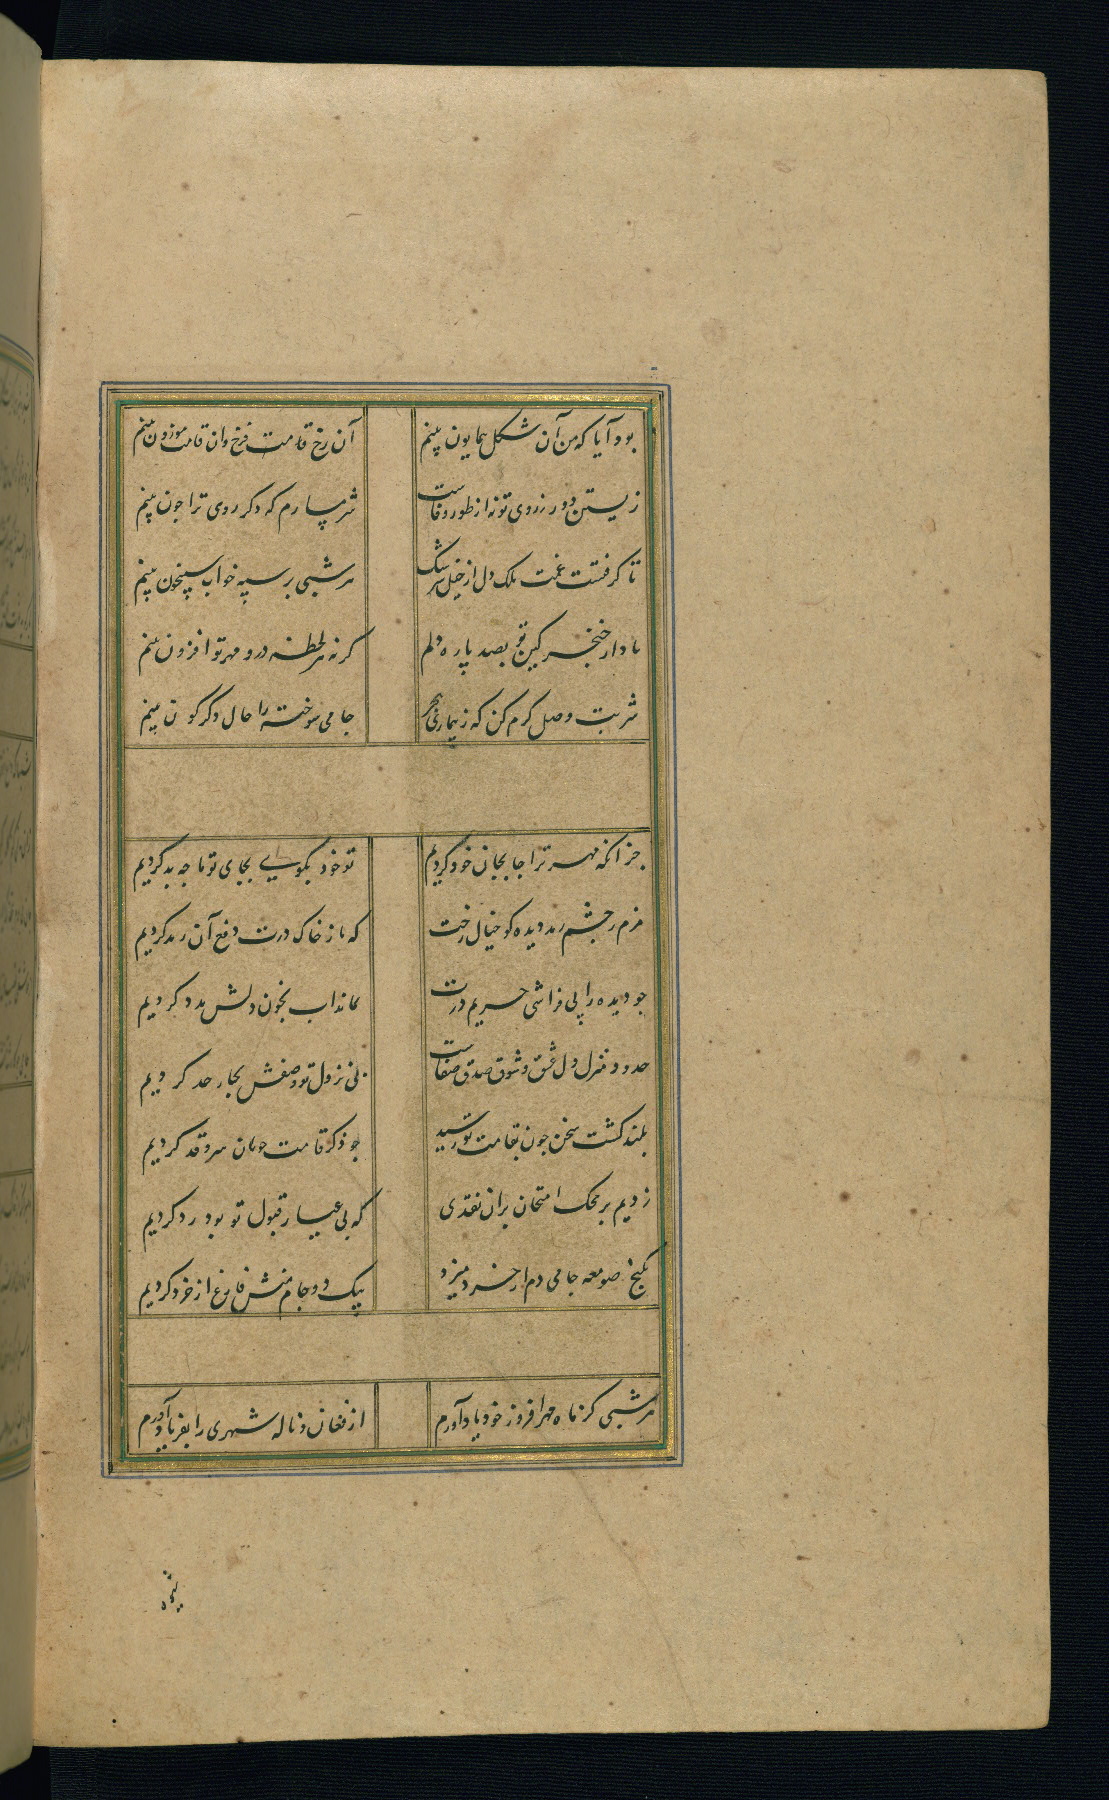 بود آیا که من آن شکل همایون بینم
آن رخ فرخ وان قامت موزون بینم
زیستن دور ز روی تو نه از طور وفاست
شرمسارم که دکر روی ترا جون بینم
تا کرفتست غمت ملک دل از خیل سرشک
هر شبی بر سپه خواب شبیخون بینم
باد از خنجر کین تو بصد پاره دلم
کر نه هر لحظه درو مهر تو افزون بینم
شربت وصل کرم کن که ز بیماری هجر
جامی سوخته را حال دکرکون بینم
جز آنکه مهر ترا جا بجان خود کردیم
تو خود بکوی بجای تو ما جه بد کردیم
رمد دیده کو خیال رخت
که ما ز خاک درت دفع آن رمد کردیم
جو دیده را پی فراشی حریم درت
نماند آب بخون دلش مدد کردیم
حدود منزل دل عشق و شوق و صدق و صفاست
پی نزول تو وصفش بجار حد کردیم
بلند کشت سخن جون بقامت تو رسید
جو ذکر قامت خوبان سرو قد کردیم
زدیم بر محک امتحان بران نقدی
که بی عیار قبول تو بود رد کردیم
بکنج صومعه جامی دم از خرد میزد
بیک دو جام منش فارغ از خرد کردیم
هر شبی کز ماه مهر افروز خود یاد آورم
از فغان و ناله شهری را بفریاد آورم